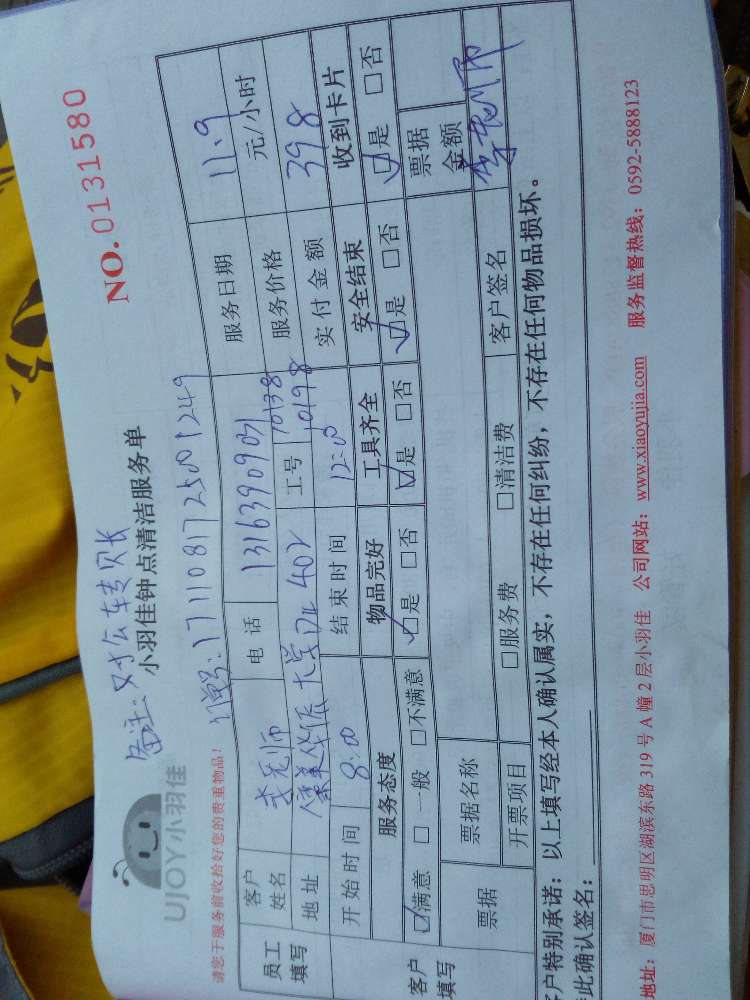 备注:对公转账
NO.0131580
UJOY小羽佳
小羽佳钟点清洁服务单
请您于服务前收拾好您的贵重物品!
编号:1711081725001249
员工填写 客户姓名 李老师 电话 13163909031 服务日期 11.9
地址 402 工号 10138 10198 服务价格 元/小时
开始时间 8:00 结束时间 12:00 实付金额 398
客户填写 服务态度 物品完好 工具齐全 安全结束 收到卡片
☑满意 □一般 □不满意 ☑是 □否 ☑是 □否 ☑是 □否 ☑是 □否
票据 票据名称 票据金额
开票项目 □服务费 □清洁费 客户签名 李老师
客户特别承诺:以上填写经本人确认属实,不存在任何纠纷,不存在任何物品损坏。
此确认签名:
地址:厦门市思明区湖滨东路 319 号 A 幢 2 层小羽佳 公司网站:www.xiaoyujia.com 服务监督热线:0592-5888123